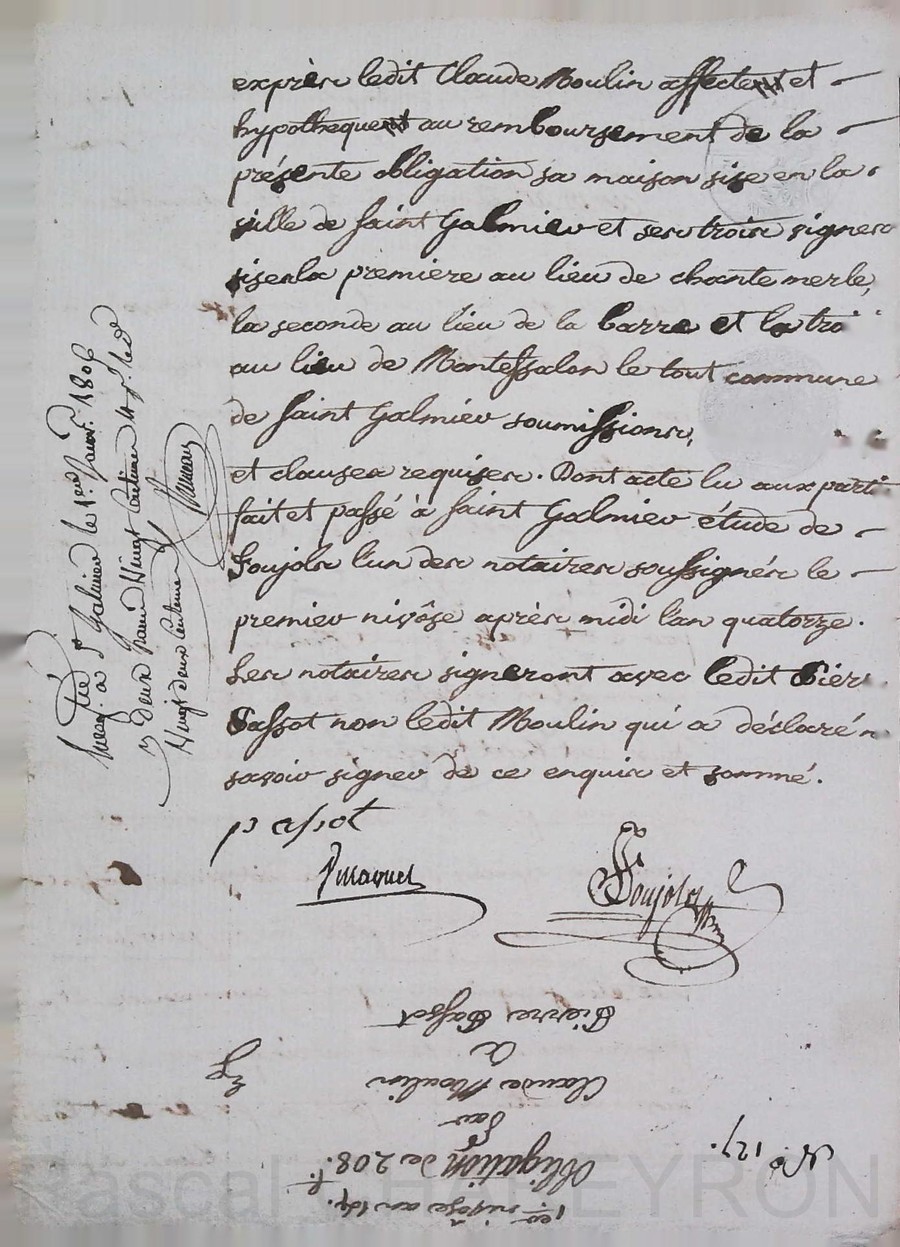 exprès ledit Claude Moulin affectent et
hypothequent au remboursement de la
présente obligation sa maison sise en la
ville de Saint Galmier et ses trois vignes
sises la première au lieu de chante merle,
la seconde au lieu de la barre et la troi
au lieu de Montessalon le tout commune
de Saint Galmier soumissions,
et clauses requises. Dont acte lu aux parti
fait et passé à Saint Galmier étude de
Soujols l'un des notaires soussignés le
premier nivôse après midi l'an quatorze.
Les notaires signeront avec ledit Pierre
Passot non ledit Moulin qui a déclaré n
savoir signer de ce enquis et sommé.
p passot
Soujols
Enreg. à St Galmier le 1er Janv. 1806
deux francs vingt centimes
vingt deux centimes
1er nivôse an 14.
Obligation de 208 f.
Par
Claude Moulin
à
Pierre Passot
No. 127.
Pascal CHALEYRON